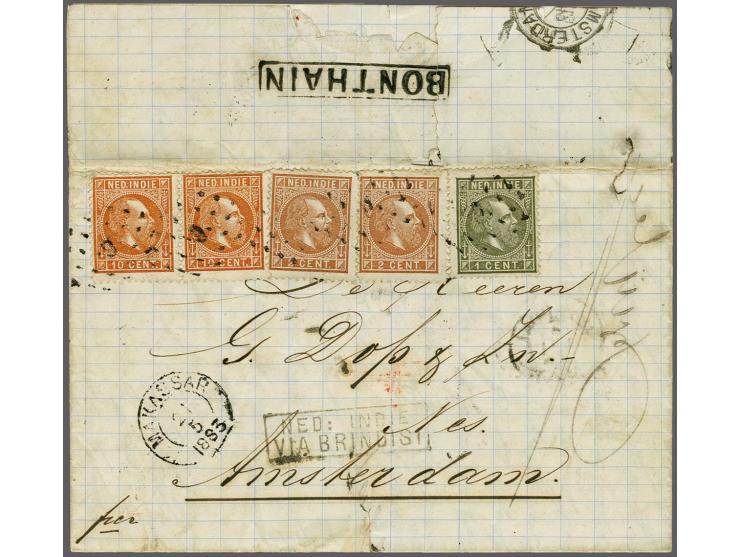 AMSTERDAM
BONTHAIN
NED. INDIE NED. INDIE NED. INDIE NED. INDIE NED. INDIE
10 CENT. CENT. CENT. 2 CENT. 1 CENT.
De Heeren
G. Dop & Zn.
MAKASSAR
5
1883
NED: INDIE
VIA BRINDISI
Nes.
Amsterdam.
per